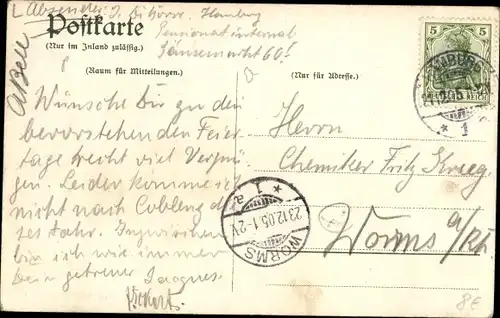 Absender: J. Hamburg
Pensionat internal
Gänsemarkt 60I
Postkarte
(Nur im Inland zulässig.)
(Raum für Mitteilungen.)
(Nur für Adresse.)
5 5
DEUTSCHES REICH
HAMBURG
* 1
Wünsche Dir zu den
bevorstehenden Feier-
tage recht viel Vergnü-
gen. Leider komme ich
nicht nach Coblenz die-
ses Jahr. Inzwischen
bin ich wie immer
Dein getreuer Jacques.
Herrn
Chemiker Fritz
Worms a/Rh.
WORMS
23.12.05.1-2V
* 1 a
8€